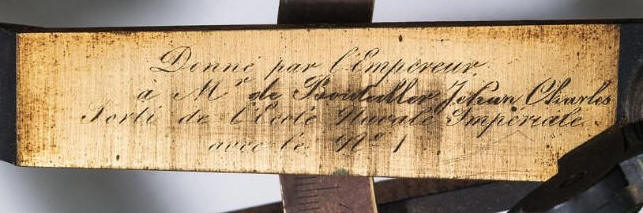 Donné par l'Empereur
à Mr de Bouteiller Jehan Charles
Sorti de l'Ecole Navale Impériale
avec le No 1